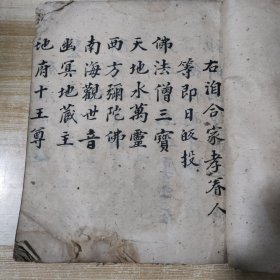 右洎合家孝眷人
等即日皈投
佛法僧三寶
天地水萬靈
西方彌陀佛
南海觀世音
幽冥地藏主
地府十王尊